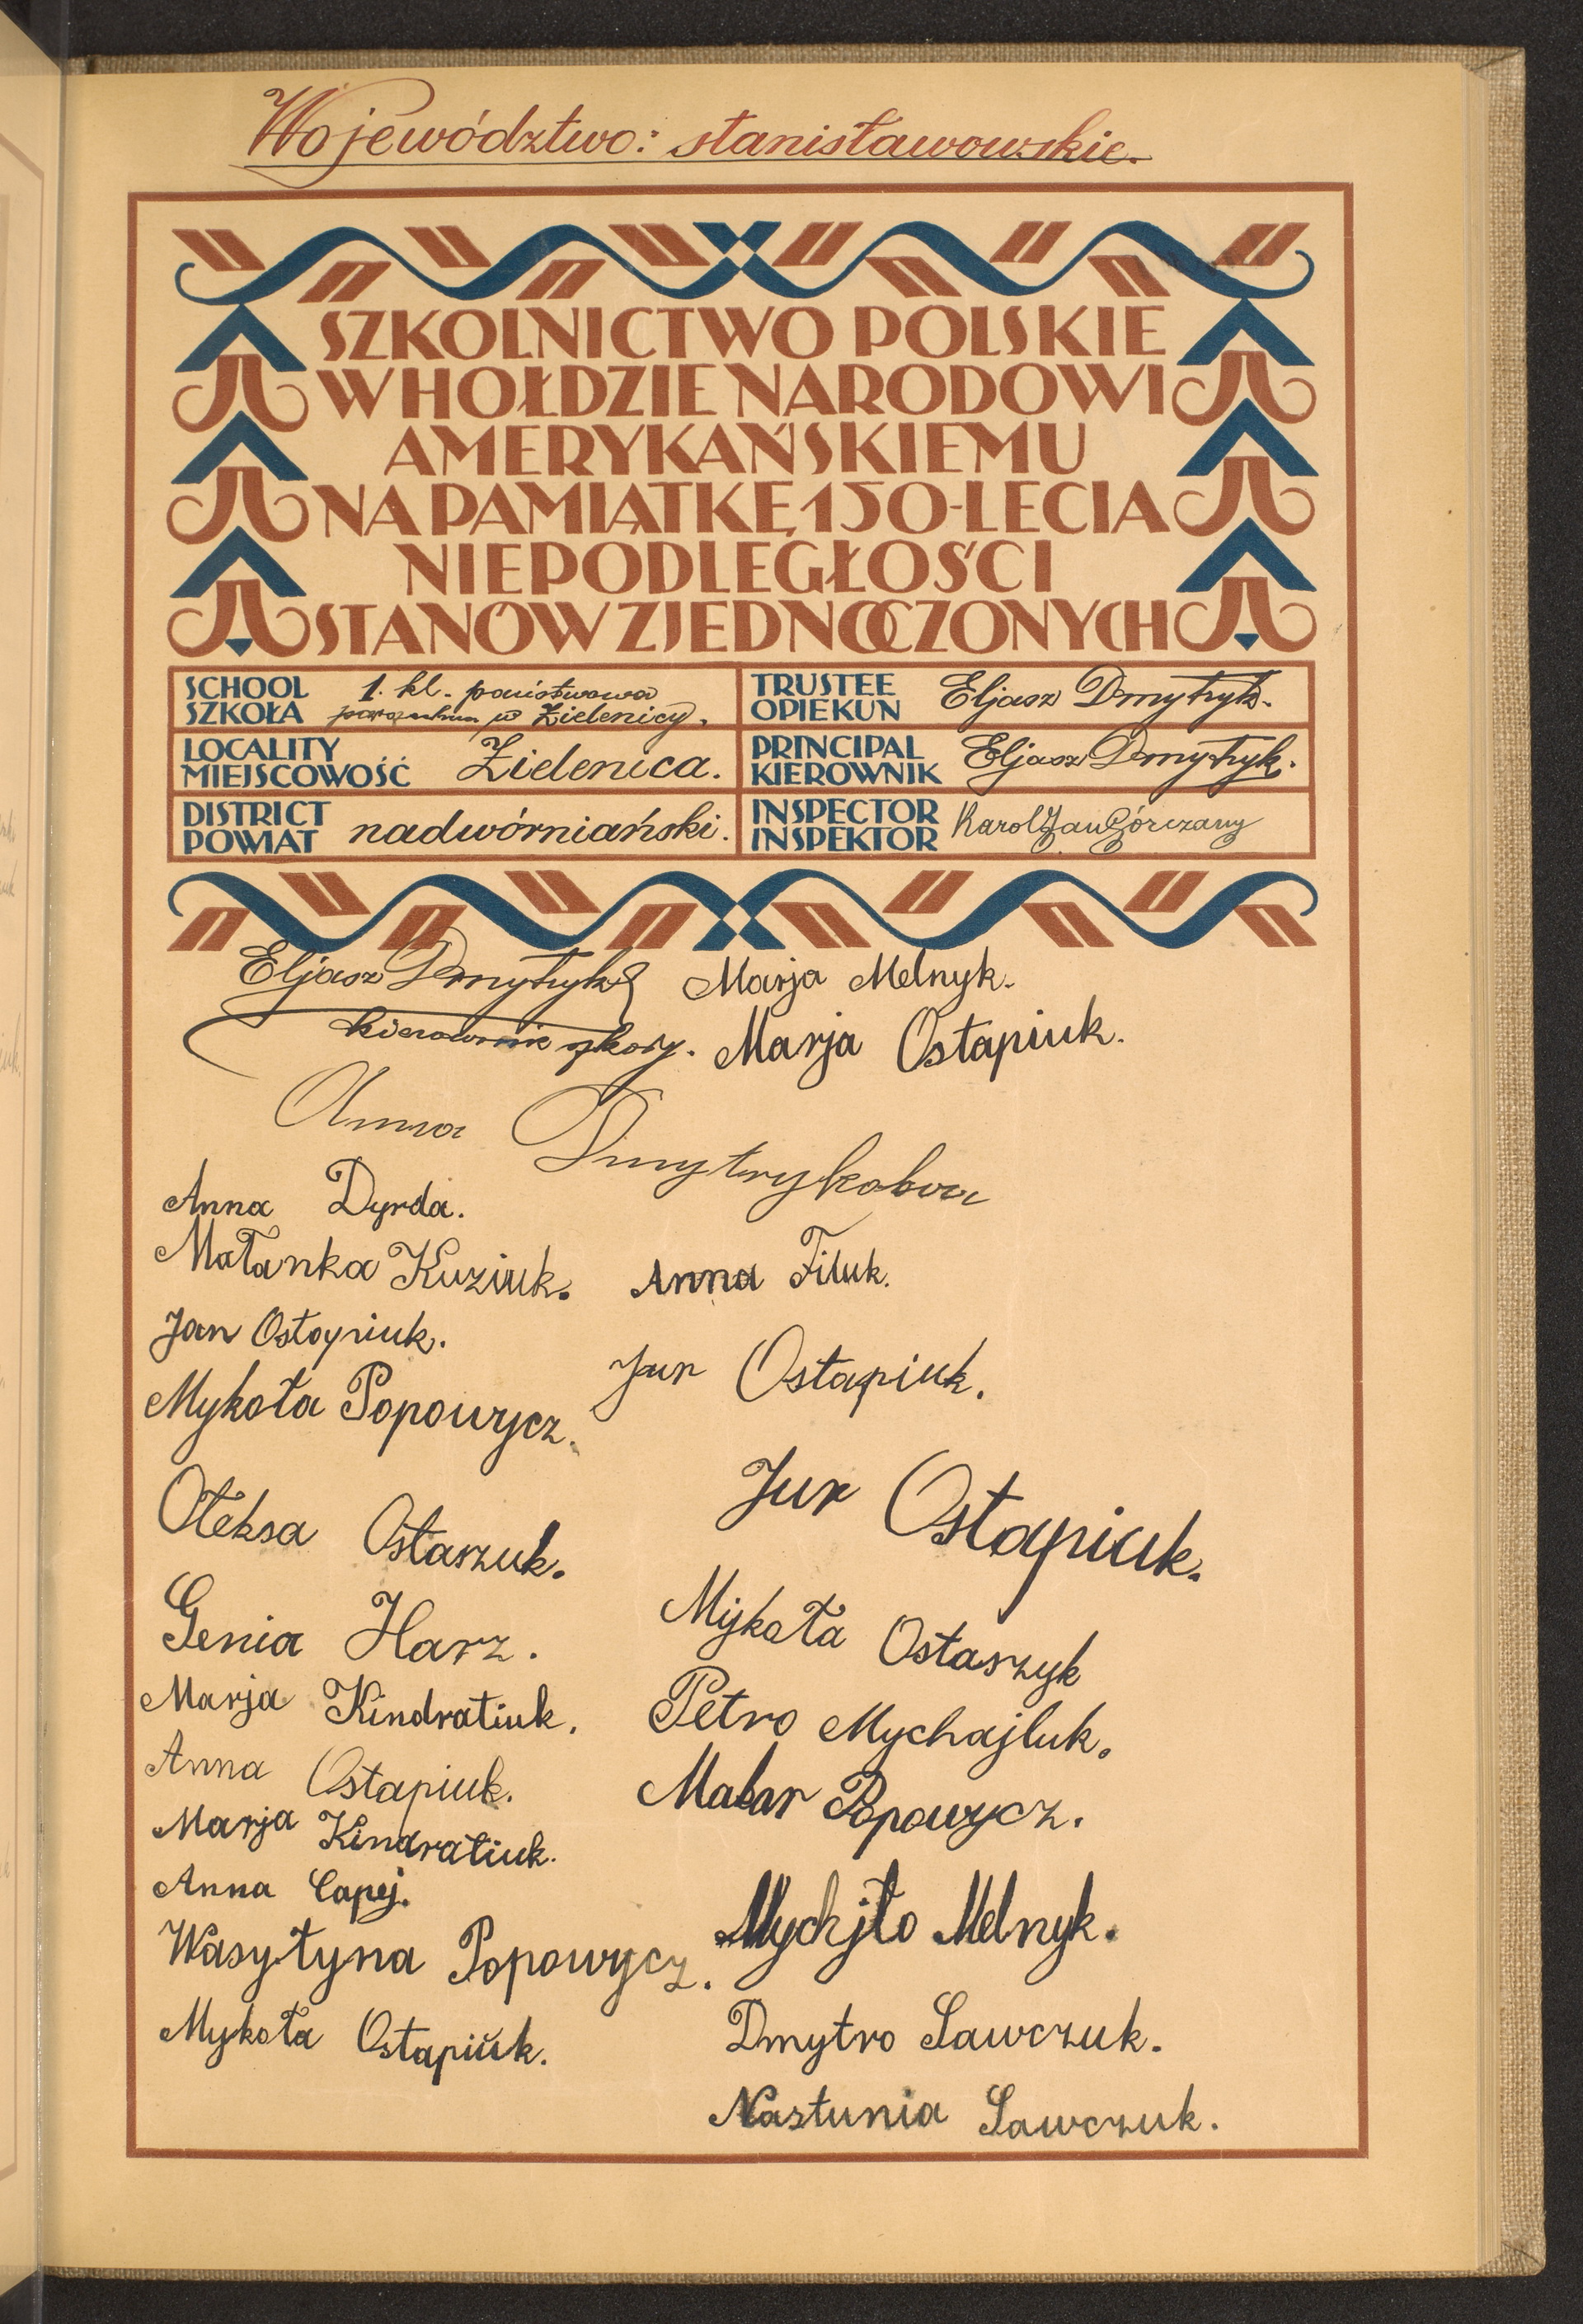 Województwo: stanisławowskie.
SZKOLNICTWO POLSKIE
W HOŁDZIE NARODOWI
AMERYKAŃSKIEMU
NA PAMIĄTKĘ 150-LECIA
NIEPODLEGŁOŚCI
STANÓW ZJEDNOCZONYCH
SCHOOL
SZKOŁA
1. kl. państwowa
w Zielenicy.
TRUSTEE
OPIEKUN
Eljasz Dmytryk.
LOCALITY
MIEJSCOWOŚĆ
Zielenica.
PRINCIPAL
KIEROWNIK
Eljasz Dmytryk.
DISTRICT
POWIAT
nadwórniański.
INSPECTOR
INSPEKTOR
Karol Jan Górczany
Eljasz Dmytryk
kierownik szkoły.
Marja Melnyk.
Marja Ostapiuk.
Anna Dmytrykowa
Anna Dyrda.
Małanka Kuziuk.
Jan Ostopiuk.
Mykoła Popowycz.
Ołeksa Ostaszuk.
Genia Harz.
Marja Kindratiuk.
Anna Ostapiuk.
Marja Kindratiuk.
Anna Capej.
Wasyłyna Popowycz.
Mykoła Ostapiuk.
Anna Filuk.
Jur Ostapiuk.
Jur Ostapiuk.
Mykoła Ostaszyk
Petro Mychajluk.
Makar Popowycz.
Mychjło Melnyk.
Dmytro Sawczuk.
Nastunia Sawczuk.